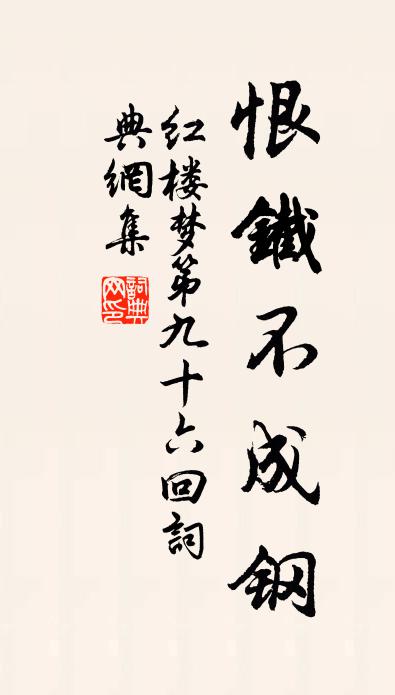 恨鐵不成钢
红楼梦第九十六回詞
典網集
詞典
网印